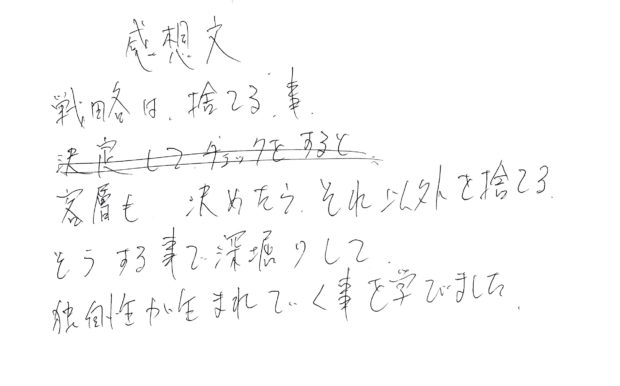 感想文
戦略は、捨てる事、
決定してチェックをすると、
客層も 決めたら、それ以外を捨てる。
そうする事で深堀りして、
独創性が生まれていく事を学びました。